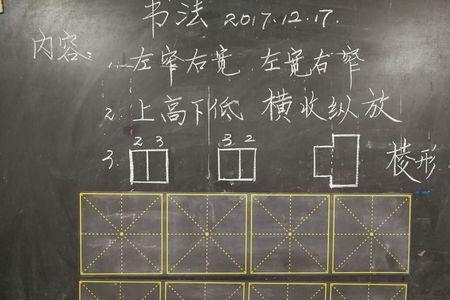 书法 2017.12.17.
内容: 1. 左窄右宽 左宽右窄
2. 上高下低 横收纵放
3. 2 3 3 2 棱形